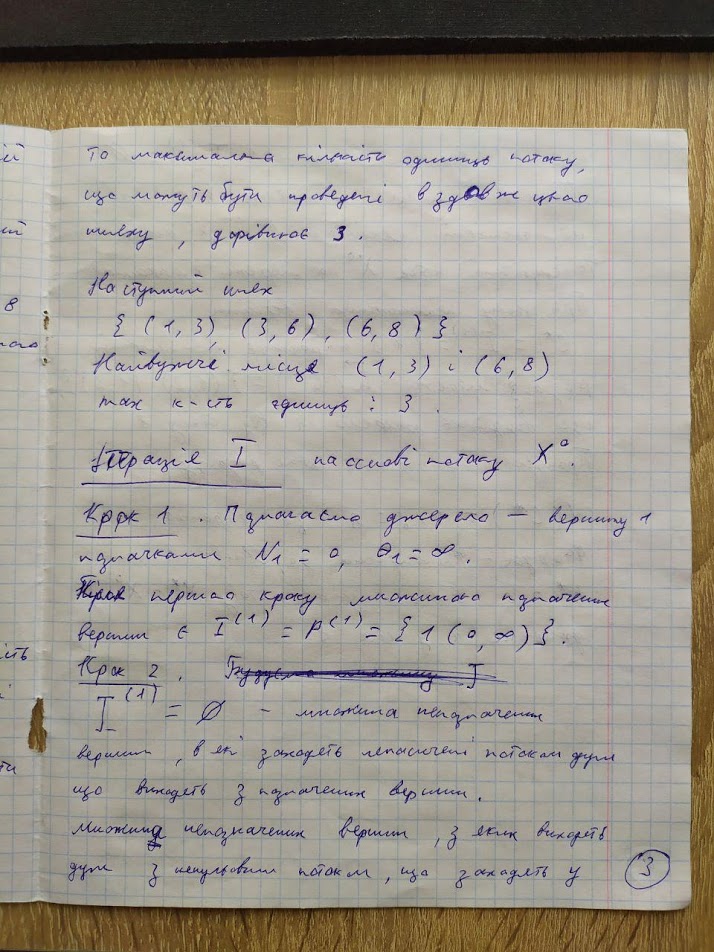 ій
ий
8
ого
ість
і
ти
то максимальна кількість одиниць потоку,
що можуть бути проведені вздовж цього
шляху, дорівнює 3.
Наступний шлях
{ (1,3), (3,6), (6,8) }
Найвужчі місця (1,3) і (6,8)
max к-сть одиниць : 3.
Ітерація I на основі потоку X⁰.
Крок 1. Позначаємо джерело — вершину 1
позначками N₁ = 0, θ₁ = ∞.
Після першого кроку множиною позначених
вершин є I⁽¹⁾ = P⁽¹⁾ = { 1 (0, ∞) }.
Крок 2. Будуємо множину J
J⁽¹⁾ = ∅ - множина непозначених
вершин, в які заходять ненасичені потоком дуги
що виходять з позначених вершин.
Множина непозначених вершин, з яких виходять
дуги з ненульовим потоком, що заходять у
3